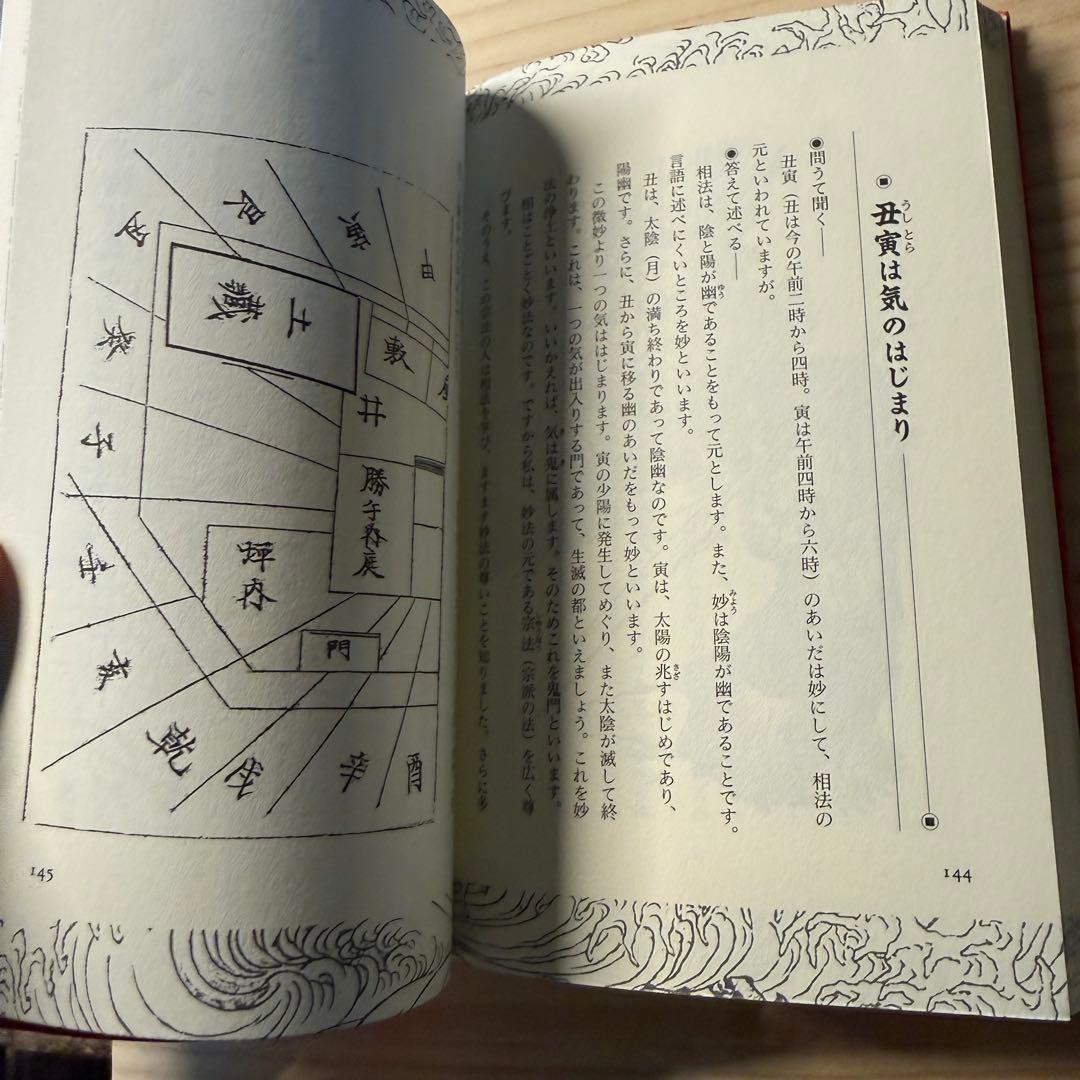 丑寅は気のはじまり
うしとら
●問うて聞く——
丑寅（丑は今の午前二時から四時。寅は午前四時から六時）のあいだは妙にして、相法の
元といわれていますが。
●答えて述べる——
相法は、陰と陽が幽であることをもって元とします。また、妙は陰陽が幽であることです。
ゆう
みよう
言語に述べにくいところを妙といいます。
丑は、太陰（月）の満ち終わりであって陰幽なのです。寅は、太陽の兆すはじめであり、
きざ
陽幽です。さらに、丑から寅に移る幽のあいだをもって妙といいます。
この微妙より一つの気ははじまります。寅の少陽に発生してめぐり、また太陰が滅して終
わります。これは、一つの気が出入りする門であって、生滅の都といえましょう。これを妙
法の浄土といいます。いいかえれば、気は鬼に属します。そのためこれを鬼門といいます。
相はことごとく妙法なのです。ですから私は、妙法の元である宗法（宗派の法）を広く尊
びます。
そのうえ、この宗法の人は相法を学び、ますます妙法の尊いことを知りました。さらに多
144
艮
寅
丑
土蔵
敷
井
子
勝手
庭
坪内
門
乾
辛
酉
145